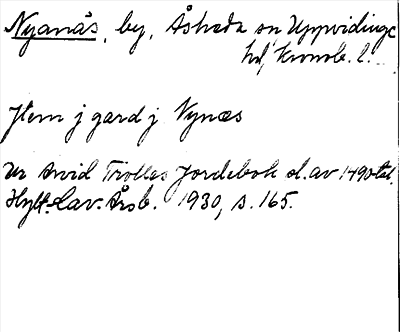 Nyanäs, by, Åsheda sn Uppvidinge
hd, Kronob. l.
Jtem j gard j Nynæs
Ur Arvid Trolles Jordebok sl. av 1490-tal.
Hylt.-Cav. Årsb. 1930, s. 165.